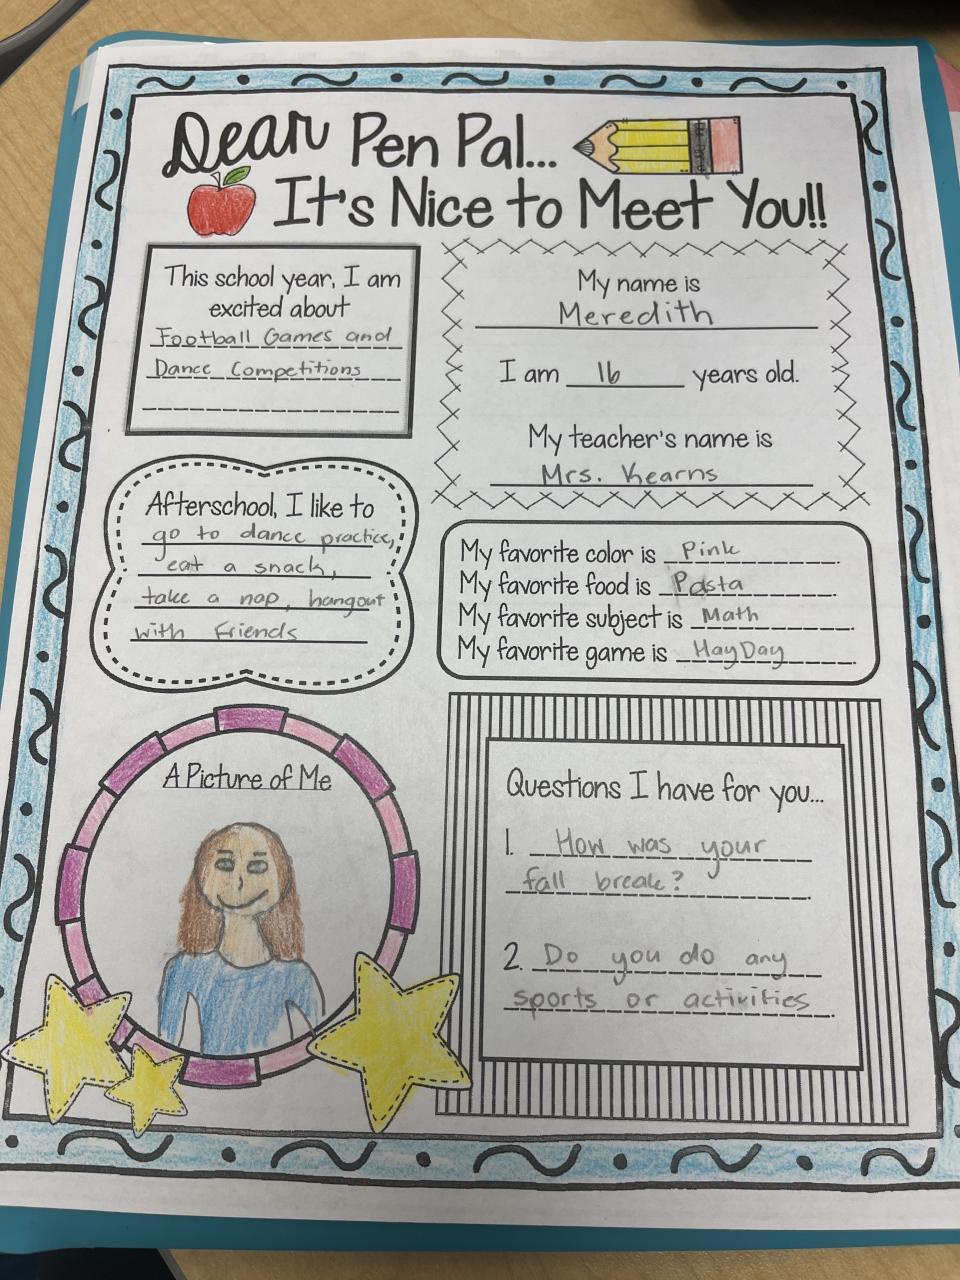 Dear Pen Pal...
It's Nice to Meet You!!
This school year, I am
excited about
Football Games and
Dance Competitions
My name is
Meredith
I am 16 years old.
My teacher's name is
Mrs. Kearns
Afterschool, I like to
go to dance practice,
eat a snack,
take a nap, hangout
with friends
My favorite color is Pink.
My favorite food is Pasta.
My favorite subject is Math.
My favorite game is HayDay.
A Picture of Me
Questions I have for you...
1. How was your
fall break?.
2. Do you do any
sports or activities.